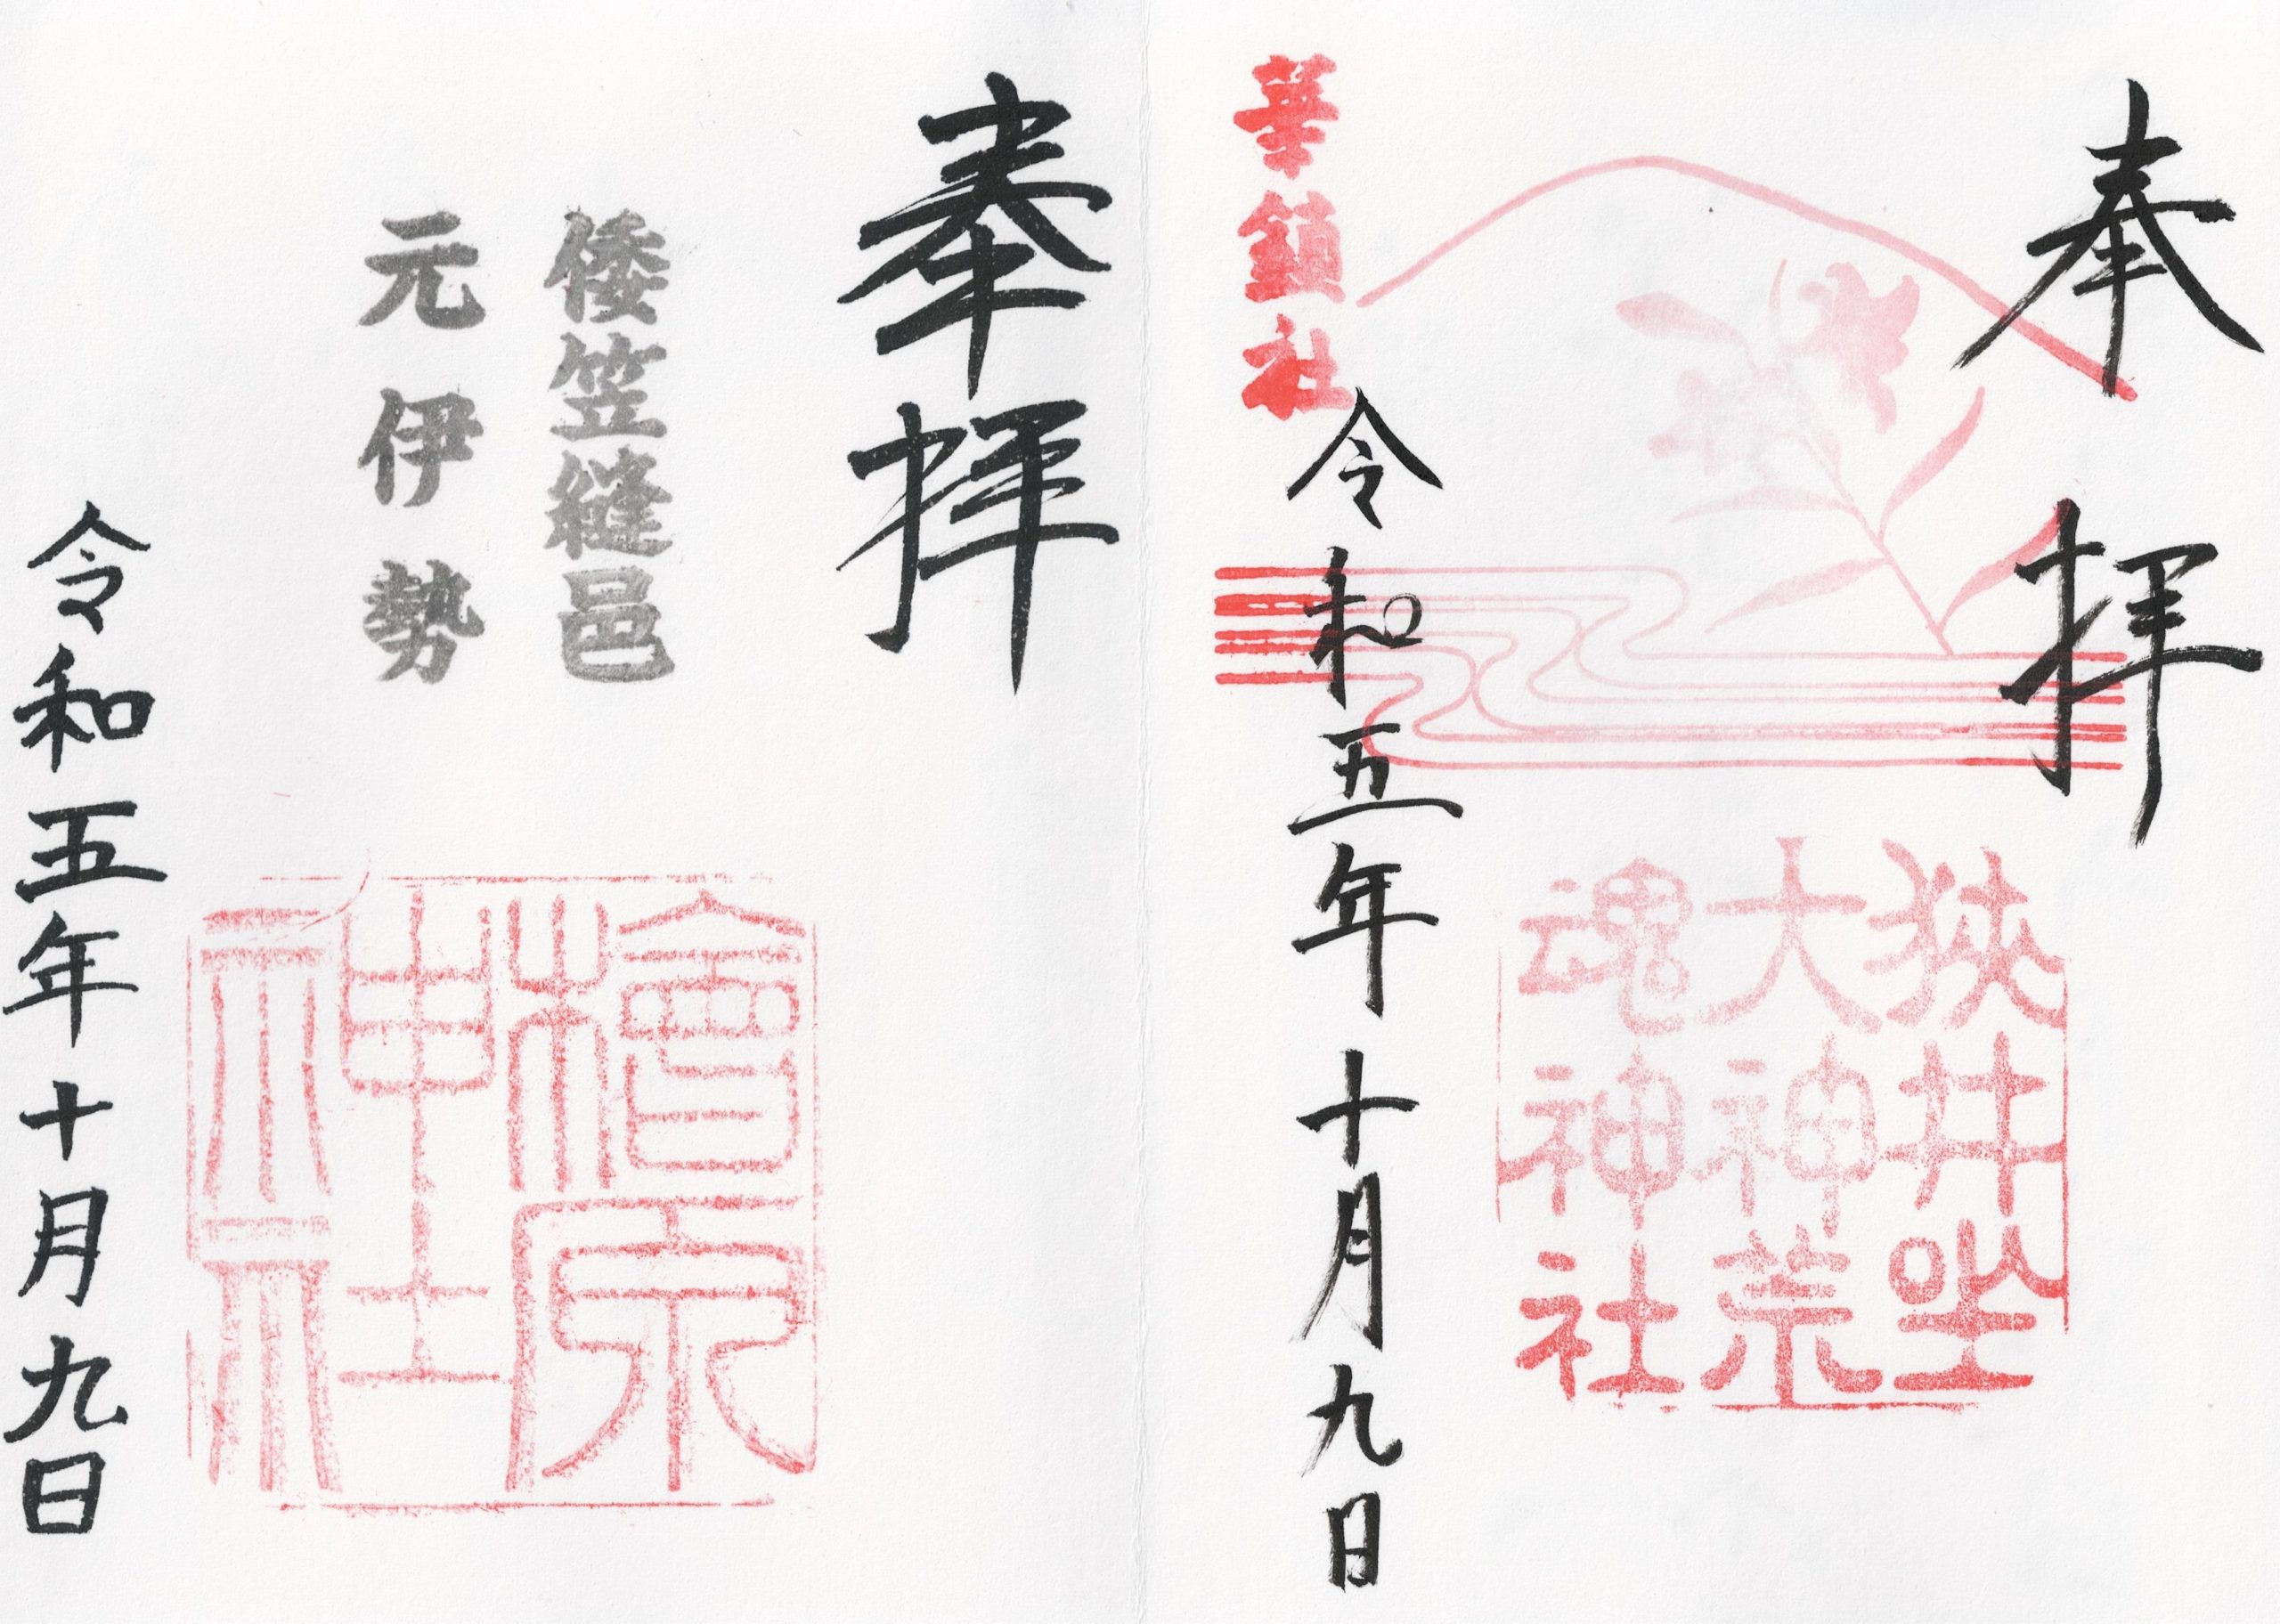 奉拝
狭井坐
大神荒
魂神社
令和五年十月九日
華鎮社
奉拝
倭笠縫邑
元伊勢
檜原
神社
令和五年十月九日